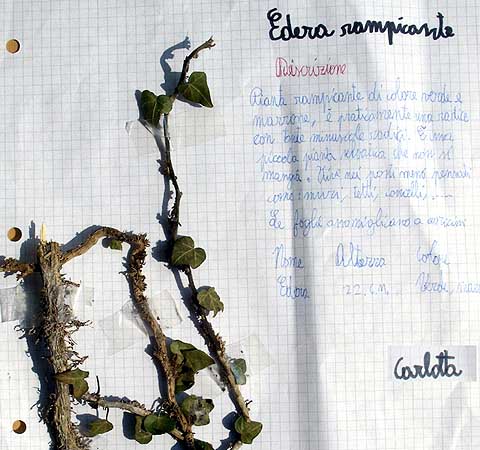 Edera rampicante
Discrizione
Pianta rampicante di colore verde e
marrone, è praticamente una radice
con tante minuscole radici. È una
piccola pianta che non si
mangia. Vive nei posti meno pensati
come: muri, tetti, cancelli, ....
Le foglie assomigliano a
Nome Altezza Colore
Edera 22 c.m. Verde,
Carlotta